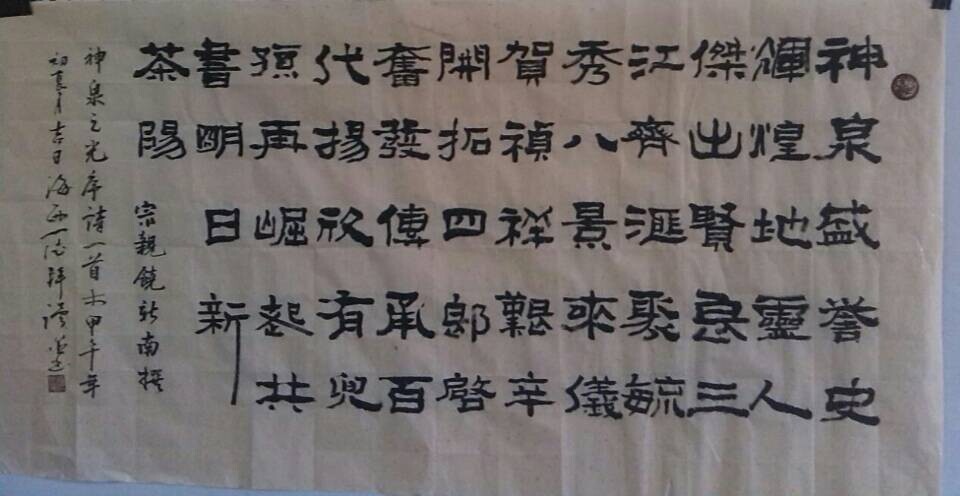 神泉盛誉史
輝煌地靈人
傑出賢三
江齊滙聚毓
秀八景來儀
賀禎祥艱辛
開拓四郎啓
奮發傳承百
代揚有
孫再崛起共
書明日新
茶陽 宗親饒新南撰
神泉之光序詩一首 甲午年
初夏月吉日海西一拜